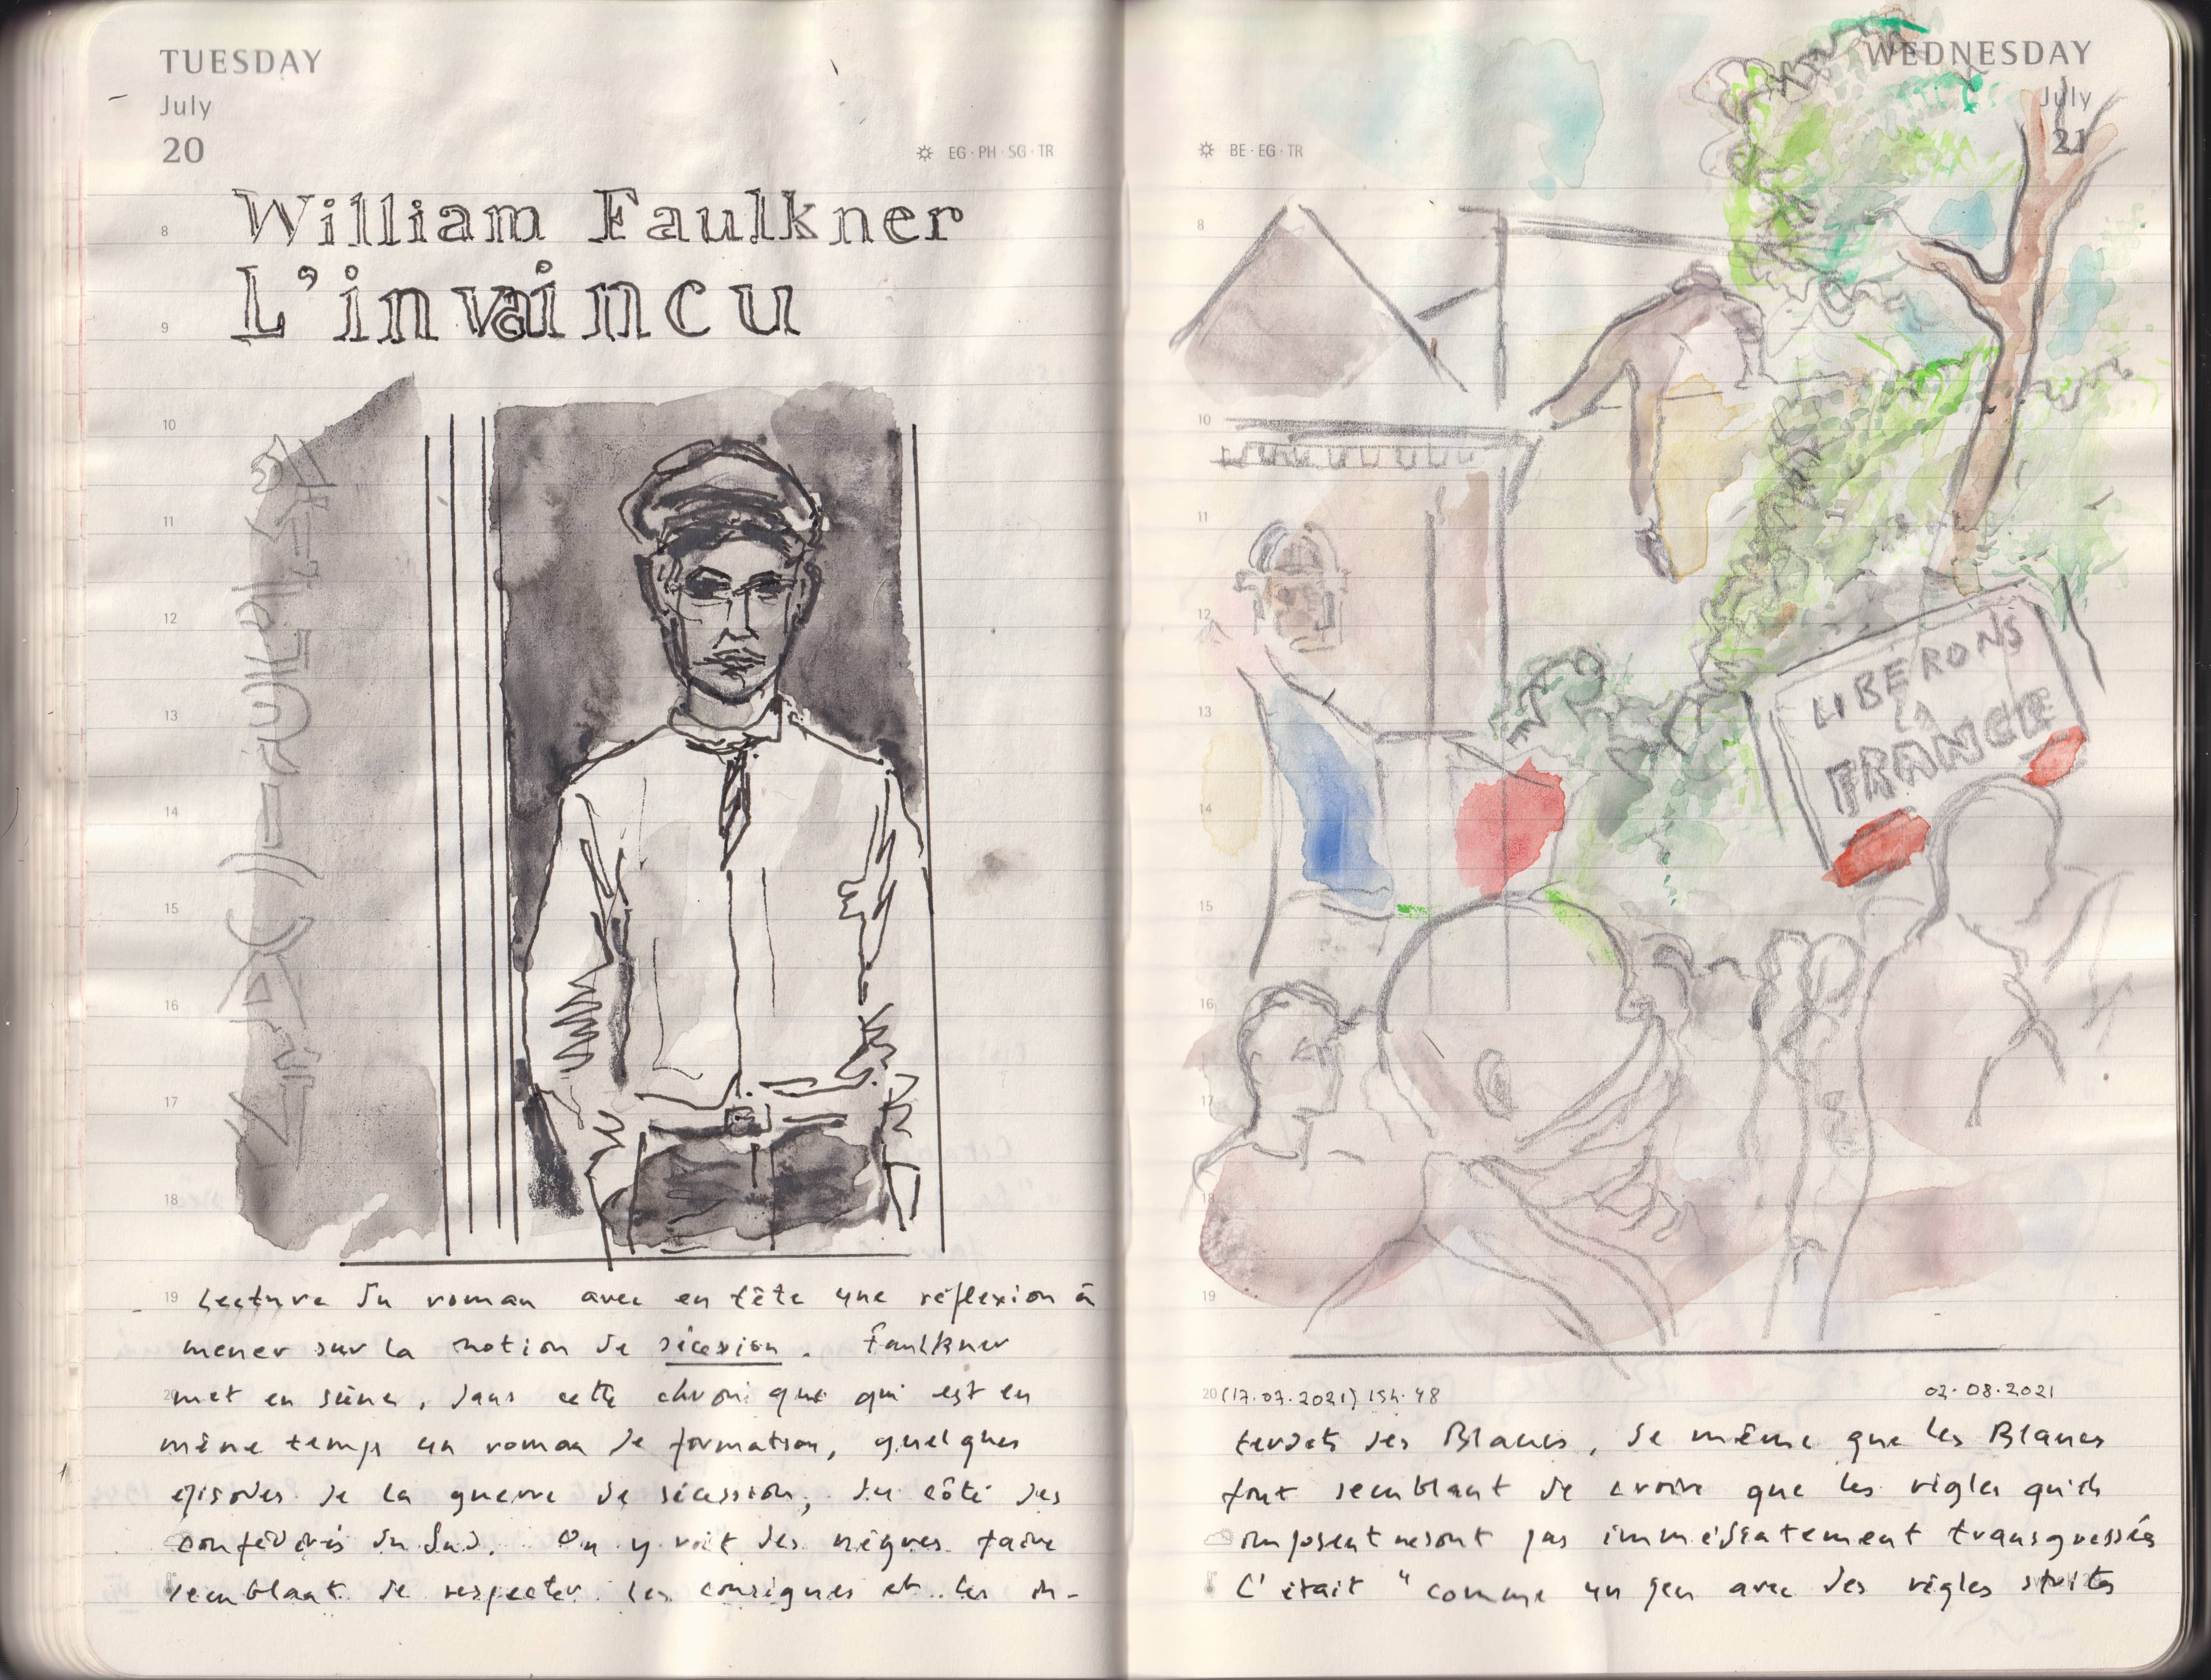 TUESDAY
July
20
EG · PH · SG · TR
William Faulkner
L'invaincu
8
9
10
11
12
13
14
15
16
17
18
19
Lecture du roman avec en tête une réflexion à
mener sur la notion de sécession. Faulkner
20
met en scène, dans cette chronique qui est en
même temps un roman de formation, quelques
épisodes de la guerre de sécession, du côté des
confédérés du Sud. On y voit des nègres faire
semblant de respecter les consignes et les in-
WEDNESDAY
July
21
BE · EG · TR
8
10
11
12
LIBERONS
LA
FRANCE
13
14
15
16
17
18
19
20
(17.07.2021) 15h.48
02.08.2021
terdits des Blancs, de même que les Blancs
font semblant de croire que les règles qu'ils
imposent ne sont pas immédiatement transgressées
C'était "comme un jeu avec des règles strictes